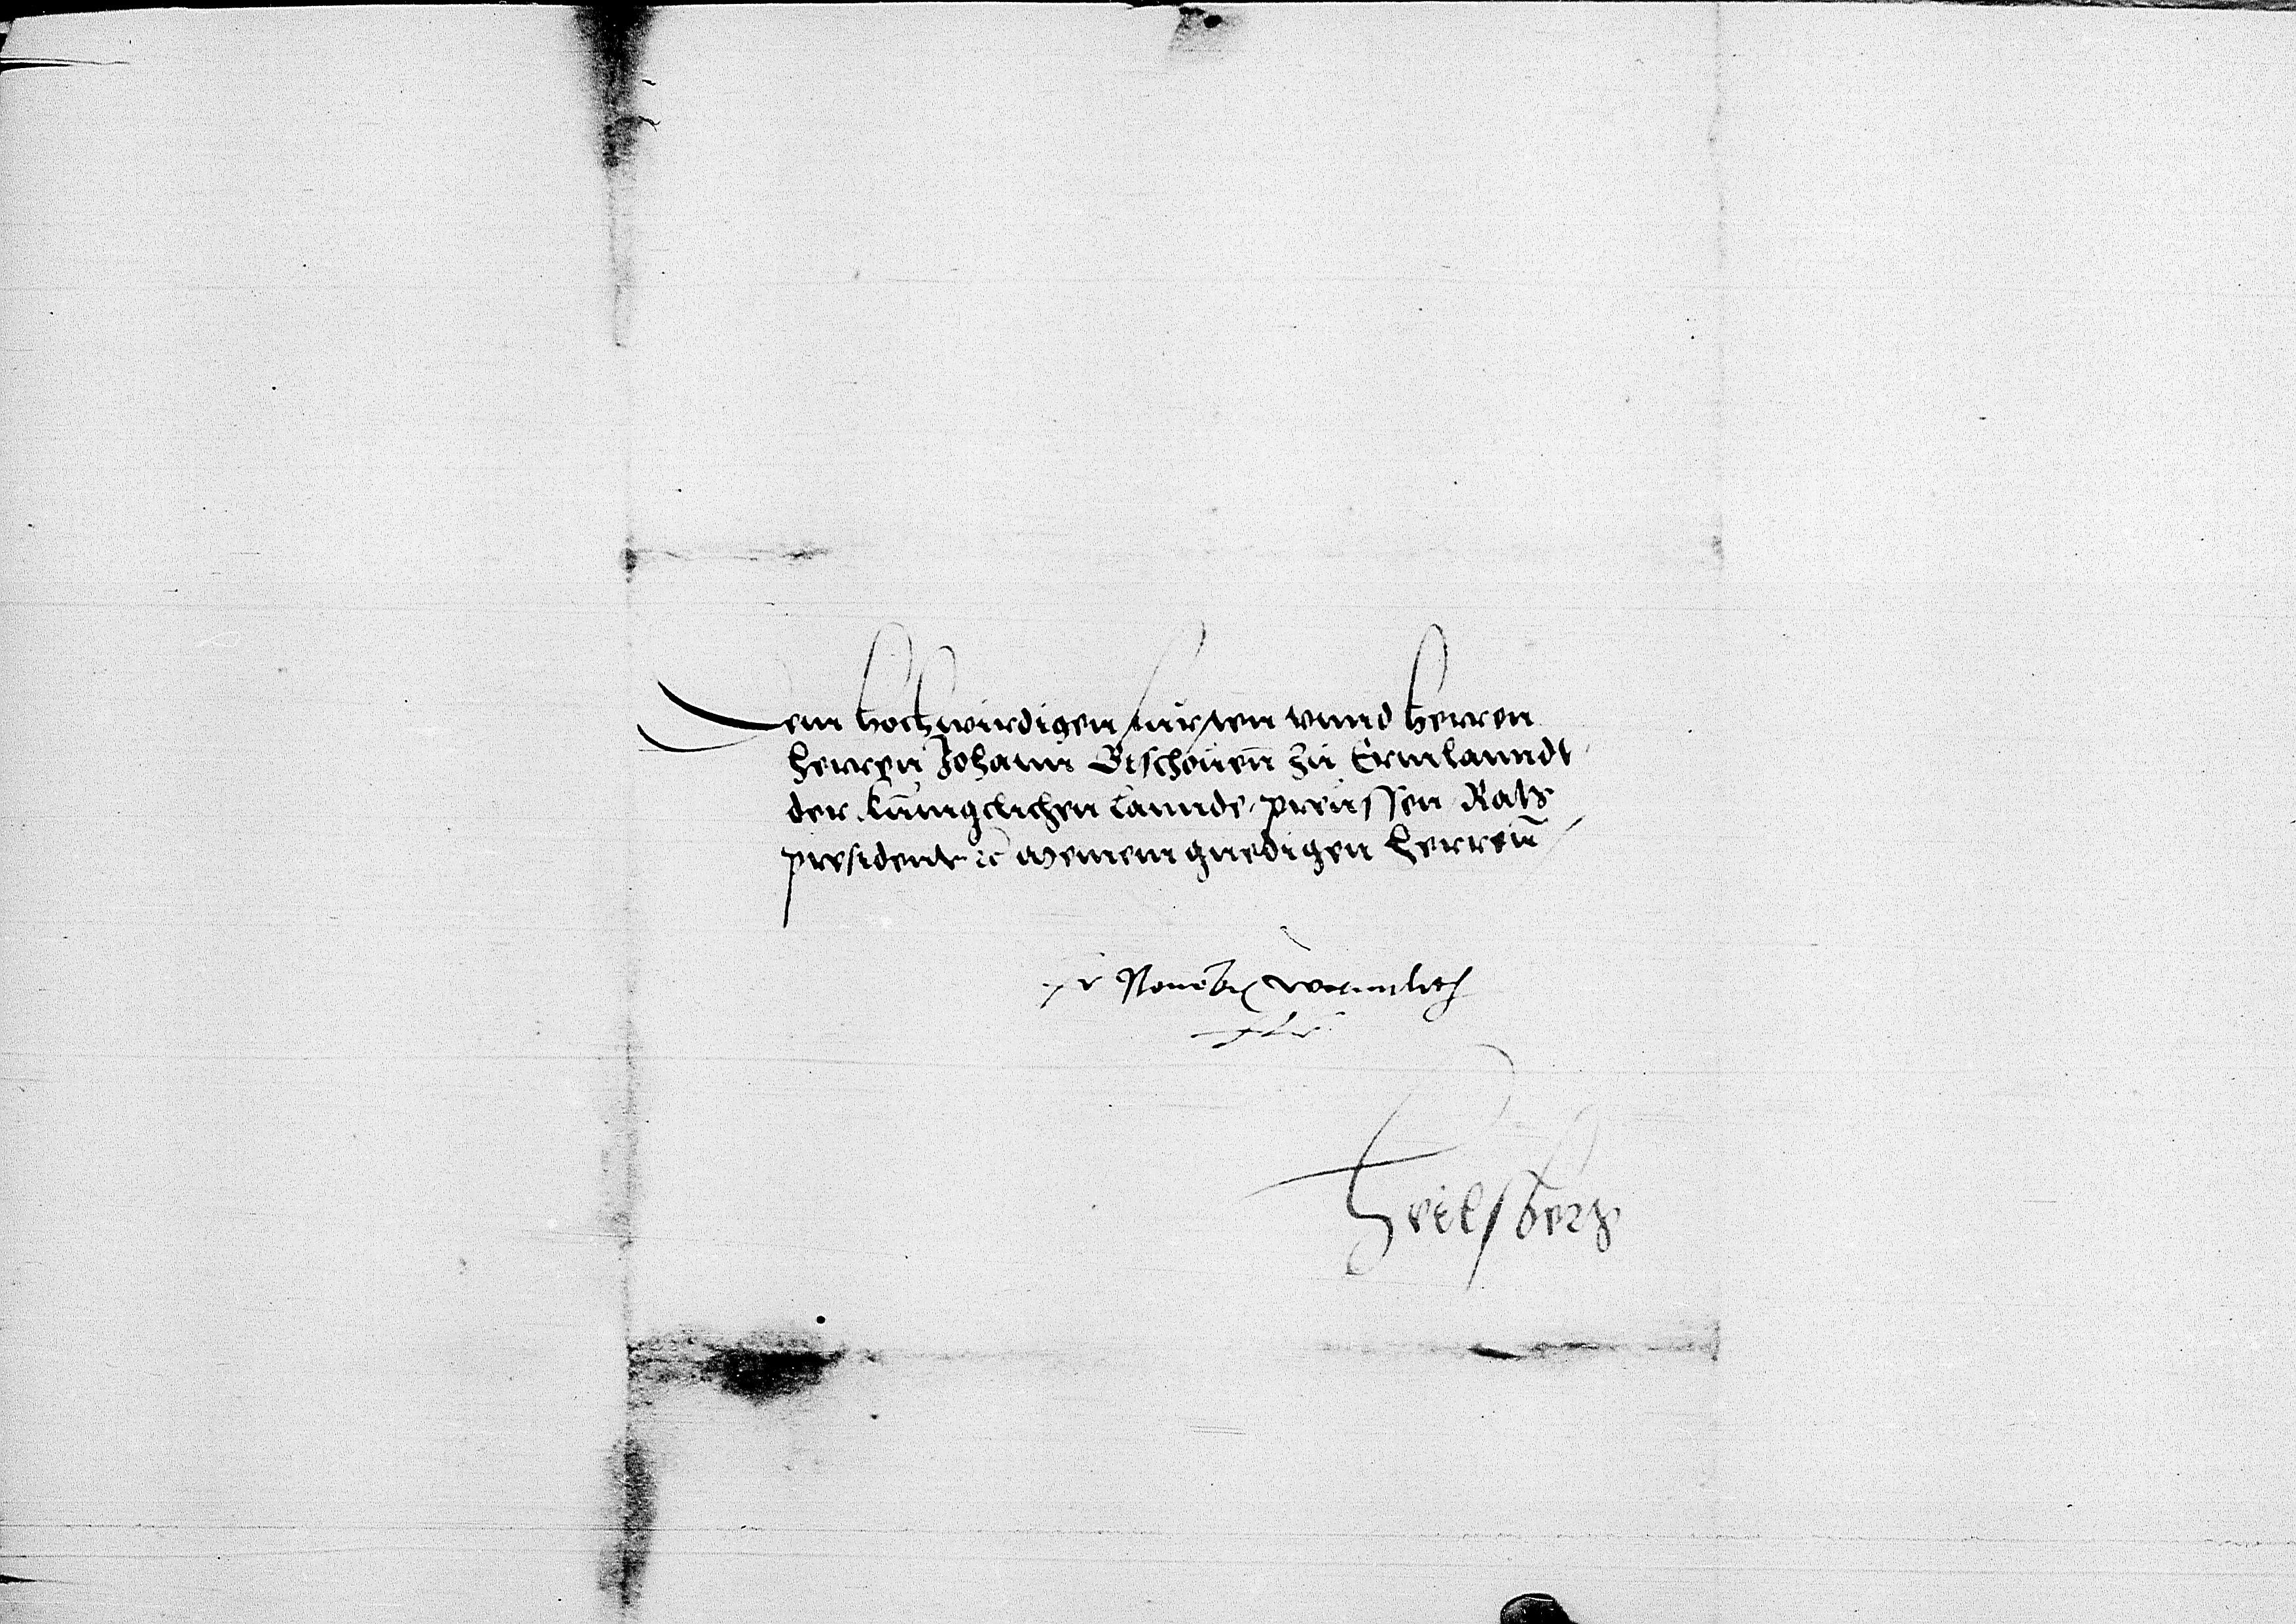 Dem hochwirdigen fursten vnnd herren
herren Johann Bischouen zu Ermlanndt
der kunigclichen lannde preussen Rats
president ꝛc meinem gnedigen herren
Heilsberg